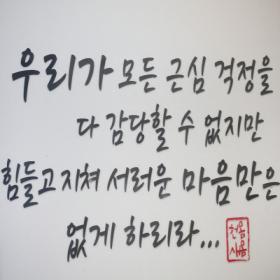 우리가 모든 근심 걱정을
다 감당할 수 없지만
힘들고 지쳐 서러운 마음만은
없게 하리라...